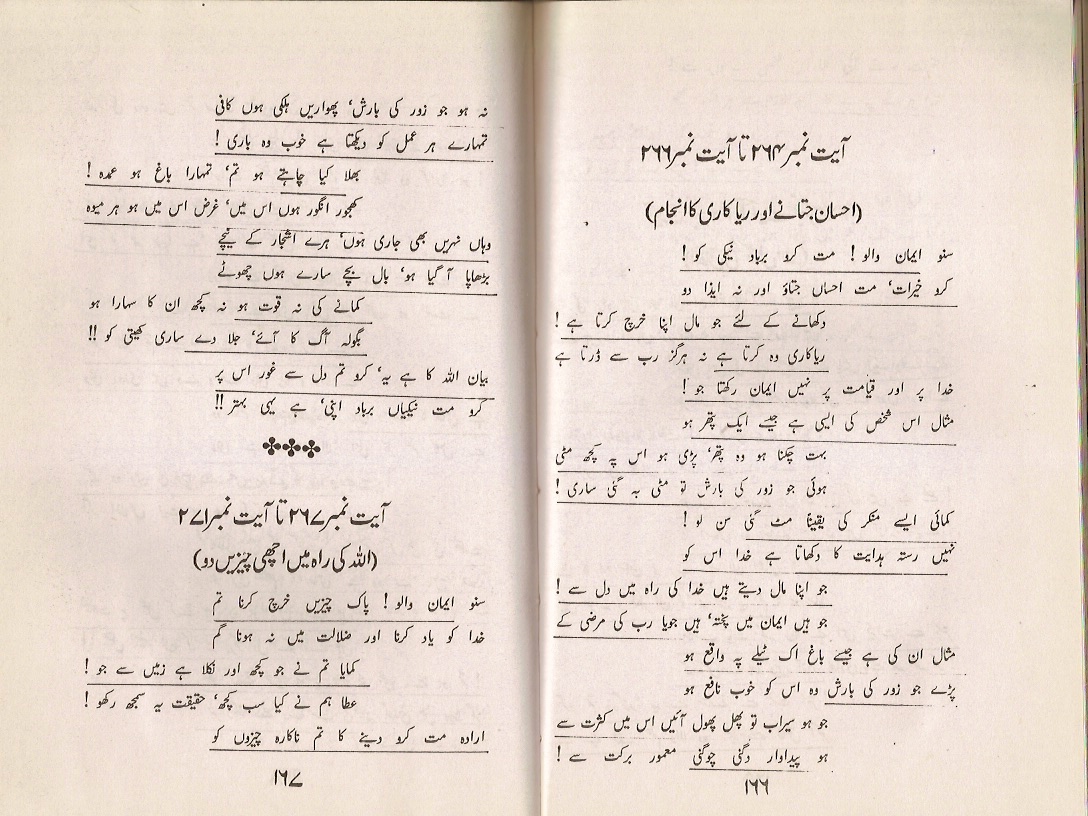 آیت نمبر ۲۶۴ تا آیت نمبر ۲۶۶
(احسان جتانے اور ریاکاری کا انجام)
سنو ایمان والو! مت کرو برباد نیکی کو!
کرو خیرات، مت احساں جتاؤ اور نہ ایذا دو
دکھانے کے لئے جو مال اپنا خرچ کرتا ہے!
ریاکاری وہ کرتا ہے نہ ہرگز رب سے ڈرتا ہے
خدا پر اور قیامت پر نہیں ایمان رکھتا جو!
مثال اس شخص کی ایسی ہے جیسے ایک پتھر ہو
بہت چکنا ہو وہ پتھر، پڑی ہو اس پہ کچھ مٹی
ہوئی جو زور کی بارش تو مٹی بہ گئی ساری!
کمائی ایسے منکر کی یقیناً مٹ گئی سن لو!
نہیں رستہ ہدایت کا دکھاتا ہے خدا اس کو
جو اپنا مال دیتے ہیں خدا کی راہ میں دل سے!
جو ہیں ایمان میں پختہ، ہیں جویا رب کی مرضی کے
مثال ان کی ہے جیسے باغ اک ٹیلے پہ واقع ہو
پڑے جو زور کی بارش وہ اس کو خوب نافع ہو
جو ہو سیراب تو پھل پھول آئیں اس میں کثرت سے
ہو پیداوار دگنی چوگنی معمور برکت سے!
۱۶۶
نہ ہو جو زور کی بارش، پھواریں ہلکی ہوں کافی
تمہارے ہر عمل کو دیکھتا ہے خوب وہ باری!
بھلا کیا چاہتے ہو تم، تمہارا باغ ہو عمدہ!
کھجور انگور ہوں اس میں، غرض اس میں ہو ہر میوہ
وہاں نہریں بھی جاری ہوں، ہرے اشجار کے نیچے
بڑھاپا آ گیا ہو، بال بچے سارے ہوں چھوٹے
کمانے کی نہ قوت ہو نہ کچھ ان کا سہارا ہو
بگولہ آگ کا آئے، جلا دے ساری کھیتی کو!!
بیان اللہ کا ہے یہ، کرو تم دل سے غور اس پر
کرو مت نیکیاں برباد اپنی، ہے یہی بہتر!!
آیت نمبر ۲۶۷ تا آیت نمبر ۲۷۱
(اللہ کی راہ میں اچھی چیزیں دو)
سنو ایمان والو! پاک چیزیں خرچ کرنا تم
خدا کو یاد کرنا اور ضلالت میں نہ ہونا گم
کمایا تم نے جو کچھ اور نکلا ہے زمیں سے جو!
عطا ہم نے کیا سب کچھ، حقیقت یہ سمجھ رکھو!
ارادہ مت کرو دینے کا تم ناکارہ چیزوں کو
۱۶۷